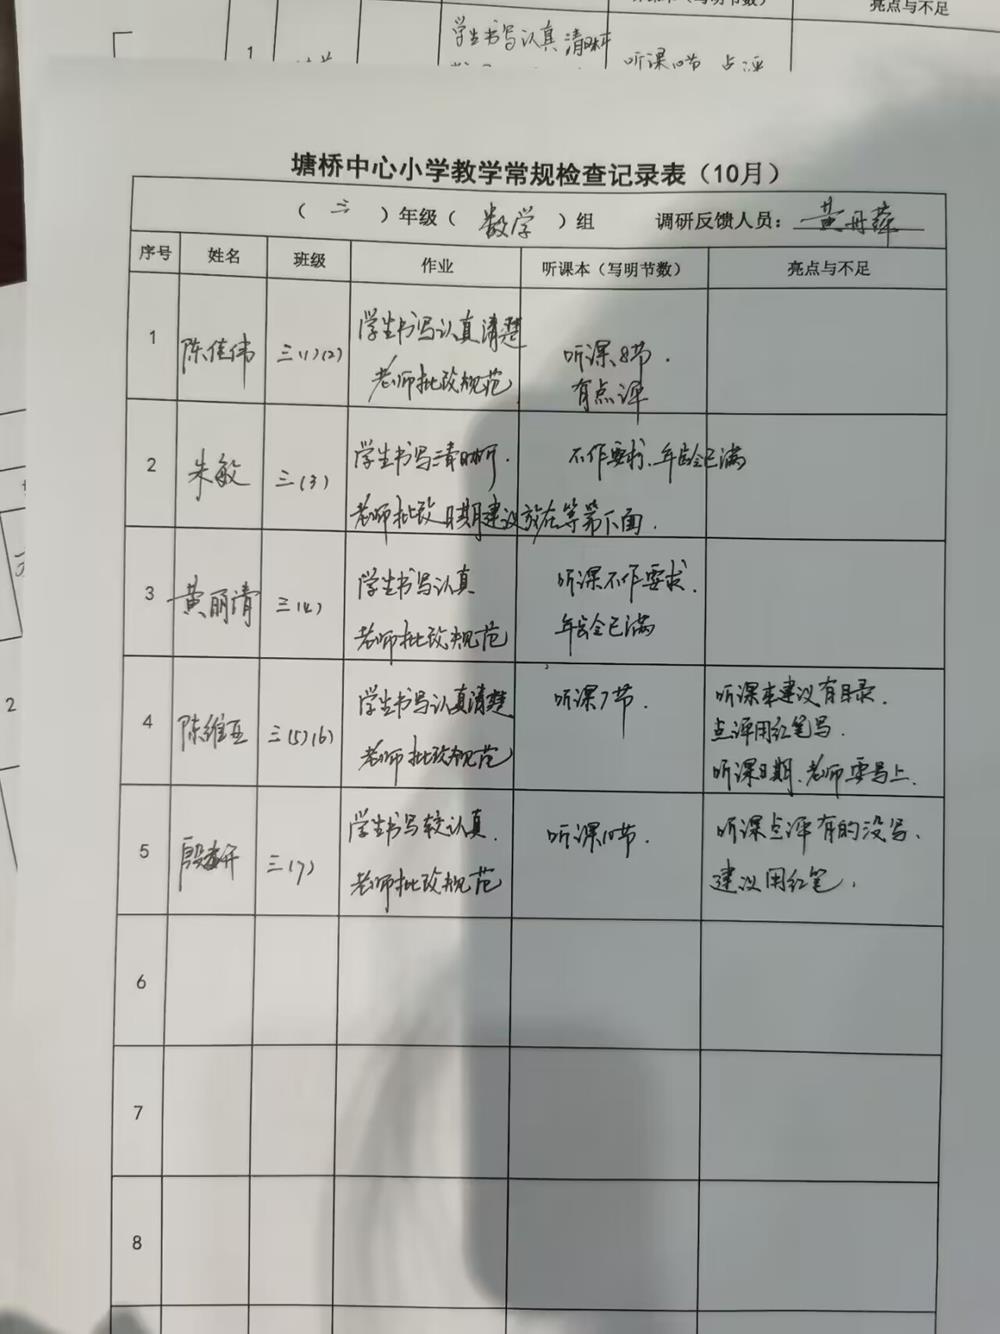 听课本（写明节数）
亮点与不足
1
学生书写认真清晰
听课10节 点评
塘桥中心小学教学常规检查记录表（10月）
（ 三 ）年级（ 数学 ）组 调研反馈人员：黄丹萍
序号 姓名 班级 作业 听课本（写明节数） 亮点与不足
1 陈佳伟 三(1)(2)
学生书写认真清楚
老师批改规范
听课8节.
有点评
2 朱敏 三(3)
学生书写清晰.
老师批改日期建议放在等第下面.
不作要求.年龄已满
3 黄丽清 三(4)
学生书写认真
老师批改规范
听课不作要求.
年龄已满
4 陈维亚 三(5)(6)
学生书写认真清楚
老师批改规范
听课7节.
听课本建议有目录.
点评用红笔写.
听课日期、老师要写上.
5 三(7)
学生书写较认真.
老师批改规范
听课10节.
听课点评有的没写、
建议用红笔.
6
7
8
2